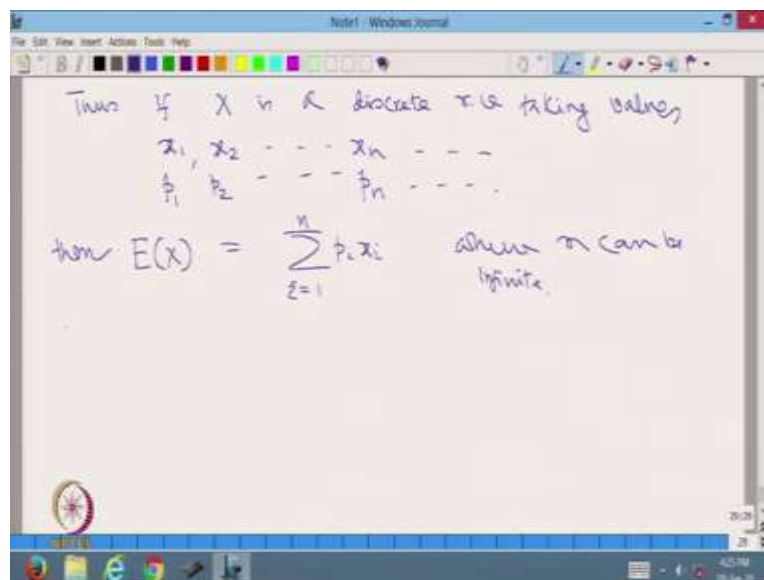 Note1 - Windows Journal
File Edit View Insert Actions Tools Help
Thus if X is a discrete r.v taking values
x₁, x₂ - - - xₙ - - -
p₁ p₂ - - - pₙ - - - .
then E(X) = ∑ᵢ₌₁ⁿ pᵢ xᵢ where n can be
infinite.